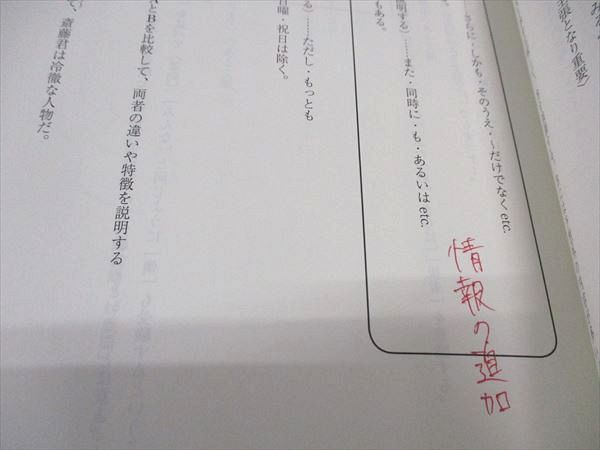 主張となり重要）
さらに・しかも・そのうえ・～だけでなくetc.
情報の追加
明する）……また・同時に・も・あるいはetc.
もある。
る）……ただし・もっとも
日曜・祝日は除く。
AとBを比較して、両者の違いや特徴を説明する
斎藤君は冷徹な人物だ。